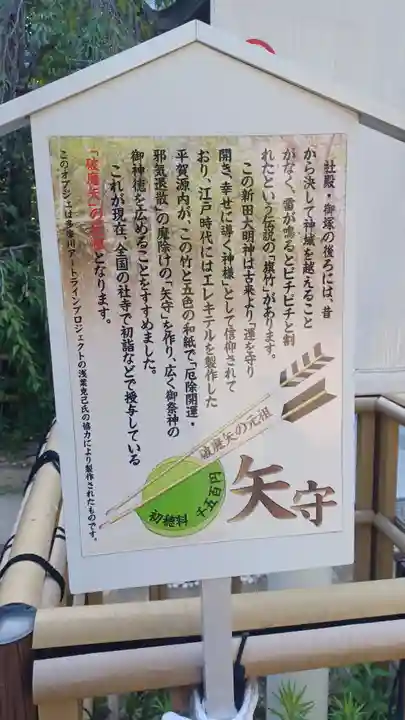 社殿・御塚の後ろには、昔
から決して神域を越えること
がなく、雷が鳴るとピチピチと割
れたという伝説の「旗竹」があります。
この新田大明神は古来より「運を守り
開き、幸せに導く神様」として信仰されて
おり、江戸時代にはエレキテルを製作した
平賀源内が、この竹と五色の和紙で「厄除開運・
邪気退散」の魔除けの「矢守」を作り、広く御祭神の
御神徳を広めることをすすめました。
これが現在、全国の社寺で初詣などで授与している
「破魔矢」の元祖となります。
このオブジェは多摩川アートラインプロジェクトの浅葉克己氏の協力により製作されたものです。
破魔矢の元祖
矢守
初穂料
千五百円